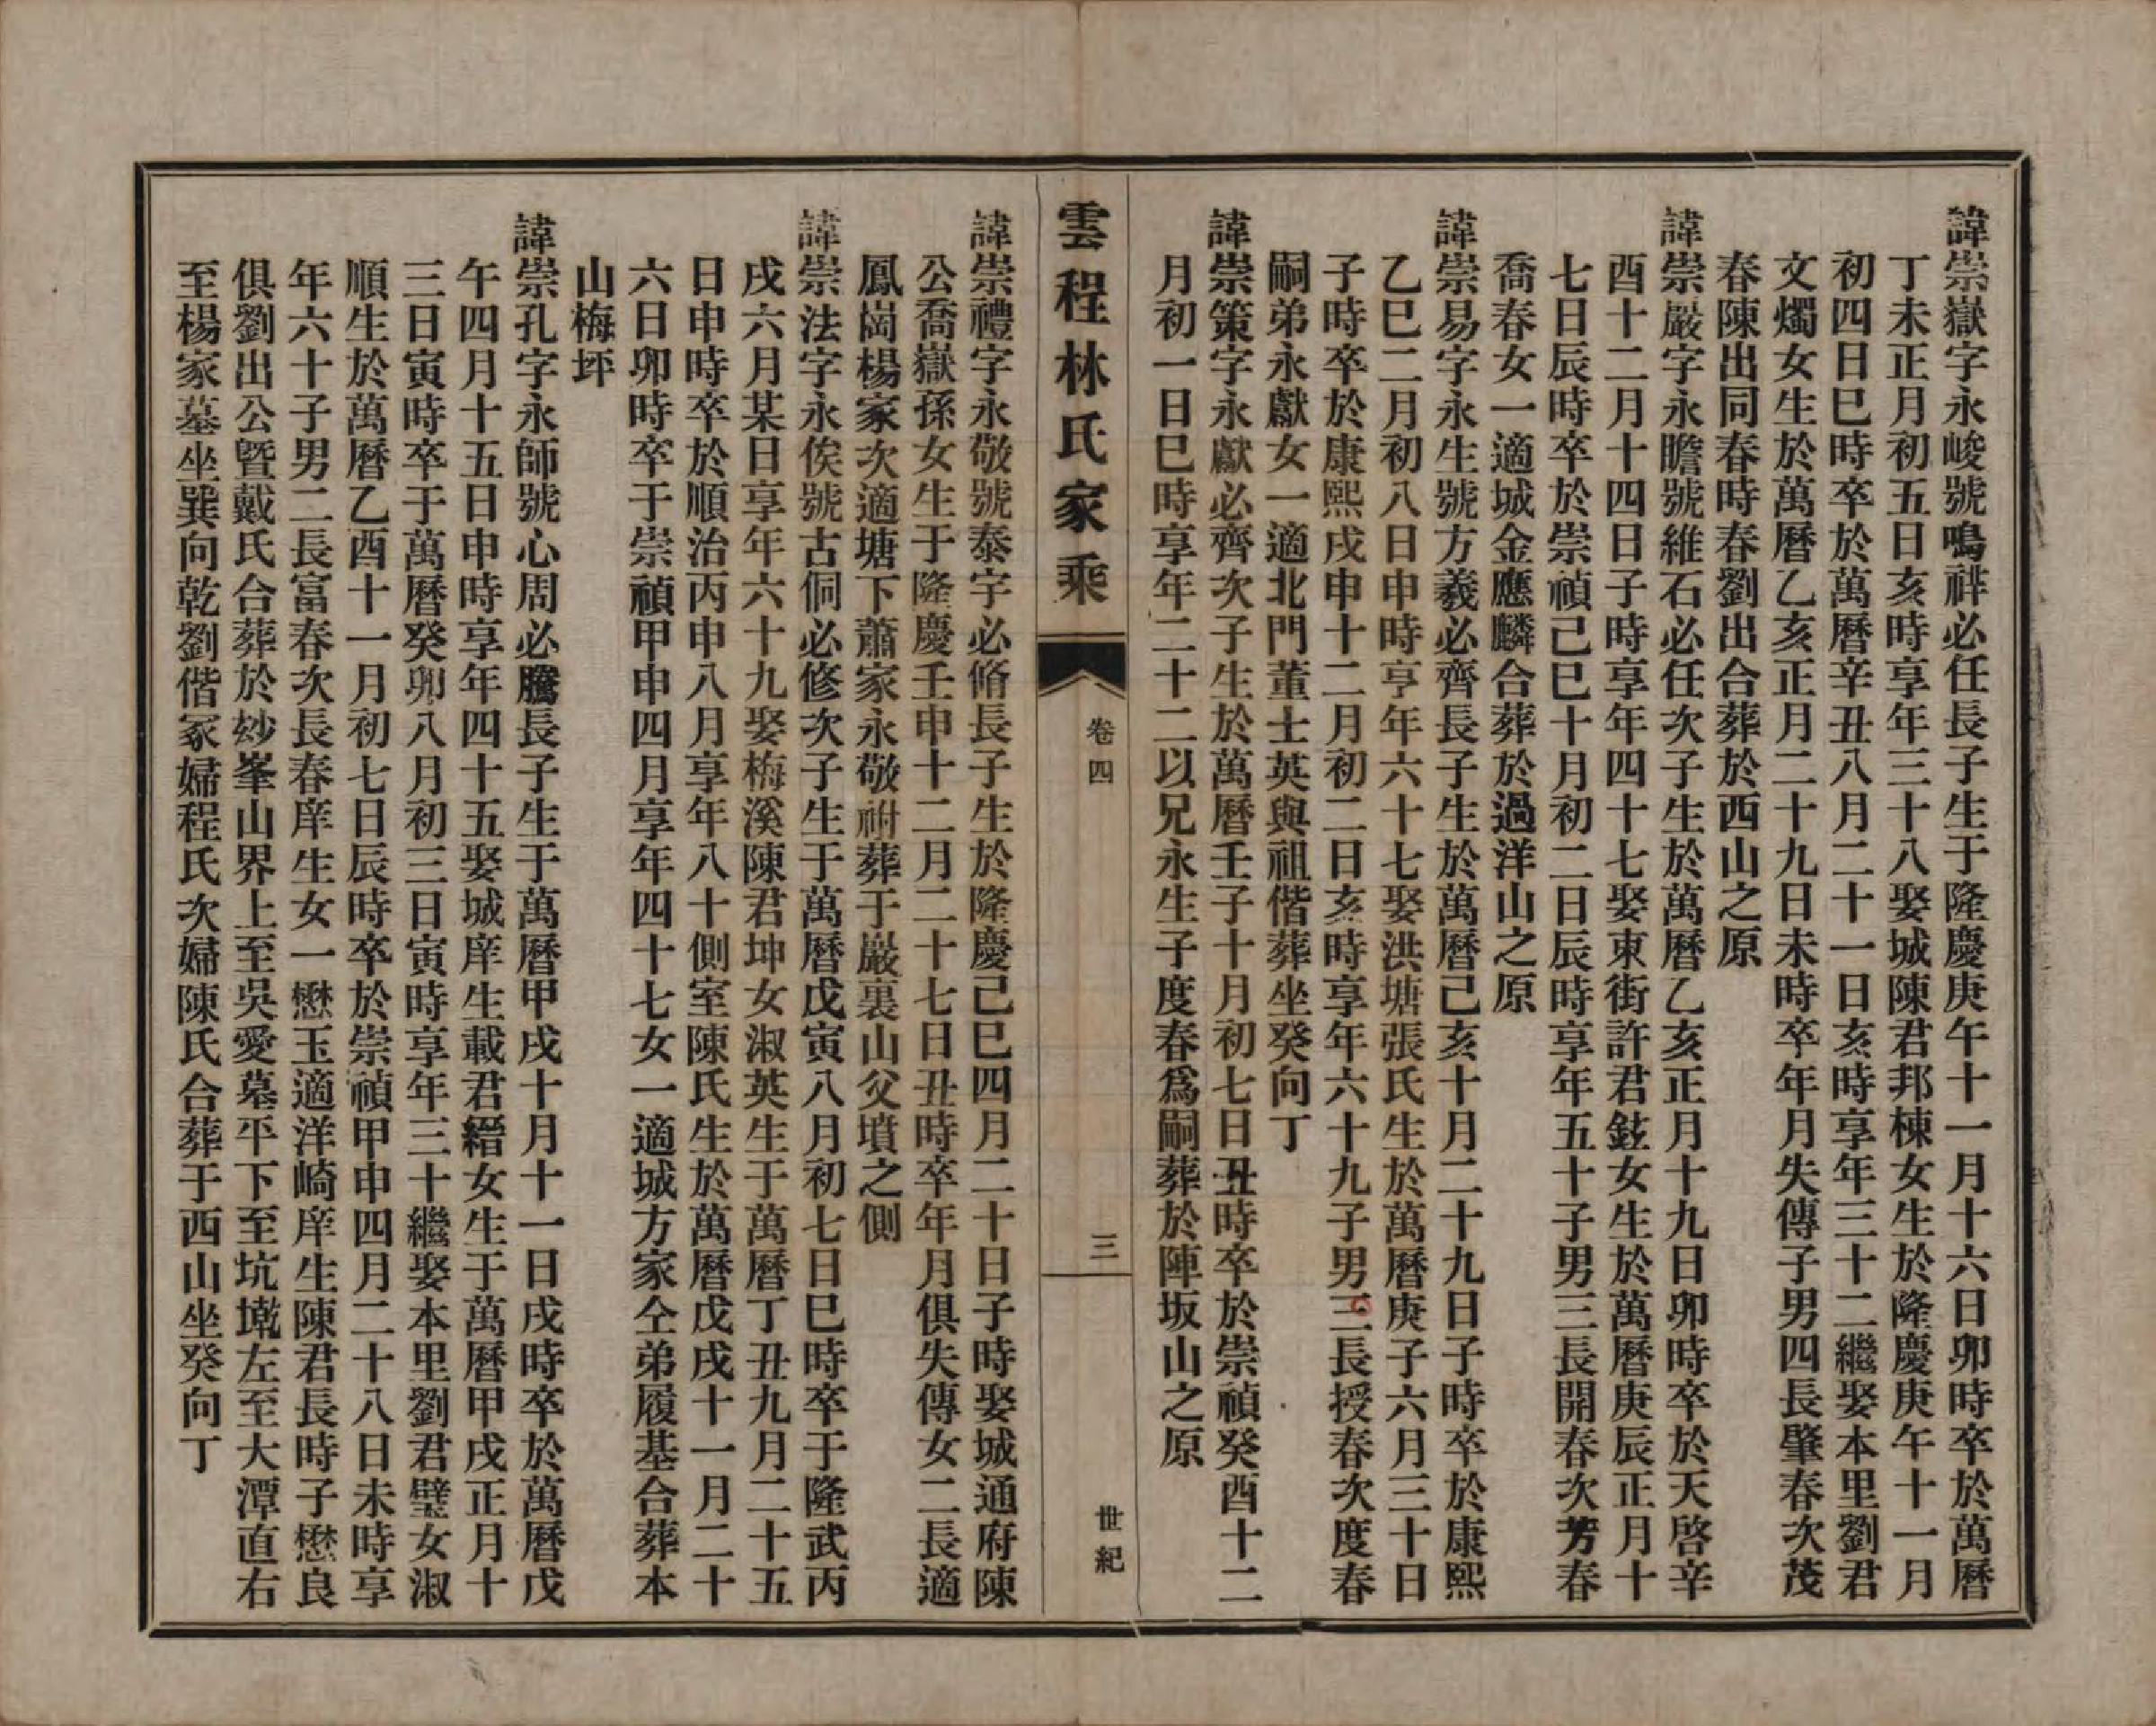 諱崇嶽字永峻號鳴祥必任長子生于隆慶庚午十一月十六日卯時卒於萬曆
丁未正月初五日亥時享年三十八娶城陳君邦棟女生於隆慶庚午十一月
初四日巳時卒於萬曆辛丑八月二十一日亥時享年三十二繼娶本里劉君
文燭女生於萬曆乙亥正月二十九日未時卒年月失傳子男四長肇春次茂
春陳出同春時春劉出合葬於西山之原
諱崇嚴字永瞻號維石必任次子生於萬曆乙亥正月十九日卯時卒於天啓辛
酉十二月十四日子時享年四十七娶東街許君鉉女生於萬曆庚辰正月十
七日辰時卒於崇禎己巳十月初二日辰時享年五十子男三長開春次芳春
喬春女一適城金應麟合葬於過洋山之原
諱崇易字永生號方羲必齊長子生於萬曆己亥十月二十九日子時卒於康熙
乙巳二月初八日申時亨年六十七娶洪塘張氏生於萬曆庚子六月三十日
子時卒於康熙戌申十二月初二日亥時享年六十九子男三長授春次度春
嗣弟永獻女一適北門董士英與祖偕葬坐癸向丁
諱崇策字永獻必齊次子生於萬曆壬子十月初七日丑時卒於崇禎癸酉十二
月初一日巳時享年二十二以兄永生子度春爲嗣葬於陣坂山之原
雲程林氏家乘
卷四
三
世紀
諱崇禮字永敬號泰宇必脩長子生於隆慶己巳四月二十日子時娶城通府陳
公喬嶽孫女生于隆慶壬申十二月二十七日丑時卒年月俱失傳女二長適
鳳崗楊家次適塘下蕭家永敬祔葬于巖裏山父墳之側
諱崇法字永俟號古侗必修次子生于萬曆戊寅八月初七日巳時卒于隆武丙
戌六月某日享年六十九娶梅溪陳君坤女淑英生于萬曆丁丑九月二十五
日申時卒於順治丙申八月享年八十側室陳氏生於萬曆戊戌十一月二十
六日卯時卒于崇禎甲申四月享年四十七女一適城方家仝弟履基合葬本
山梅坪
諱崇孔字永師號心周必騰長子生于萬曆甲戌十月十一日戌時卒於萬曆戊
午四月十五日申時享年四十五娶城庠生載君縉女生于萬曆甲戌正月十
三日寅時卒于萬曆癸卯八月初三日寅時享年三十繼娶本里劉君璧女淑
順生於萬曆乙酉十一月初七日辰時卒於崇禎甲申四月二十八日未時享
年六十子男二長富春次長春庠生女一懋玉適洋崎庠生陳君長時子懋良
俱劉出公曁戴氏合葬於玅峯山界上至吳愛墓平下至坑墘左至大潭直右
至楊家墓坐巽向乾劉偕冢婦程氏次婦陳氏合葬于西山坐癸向丁